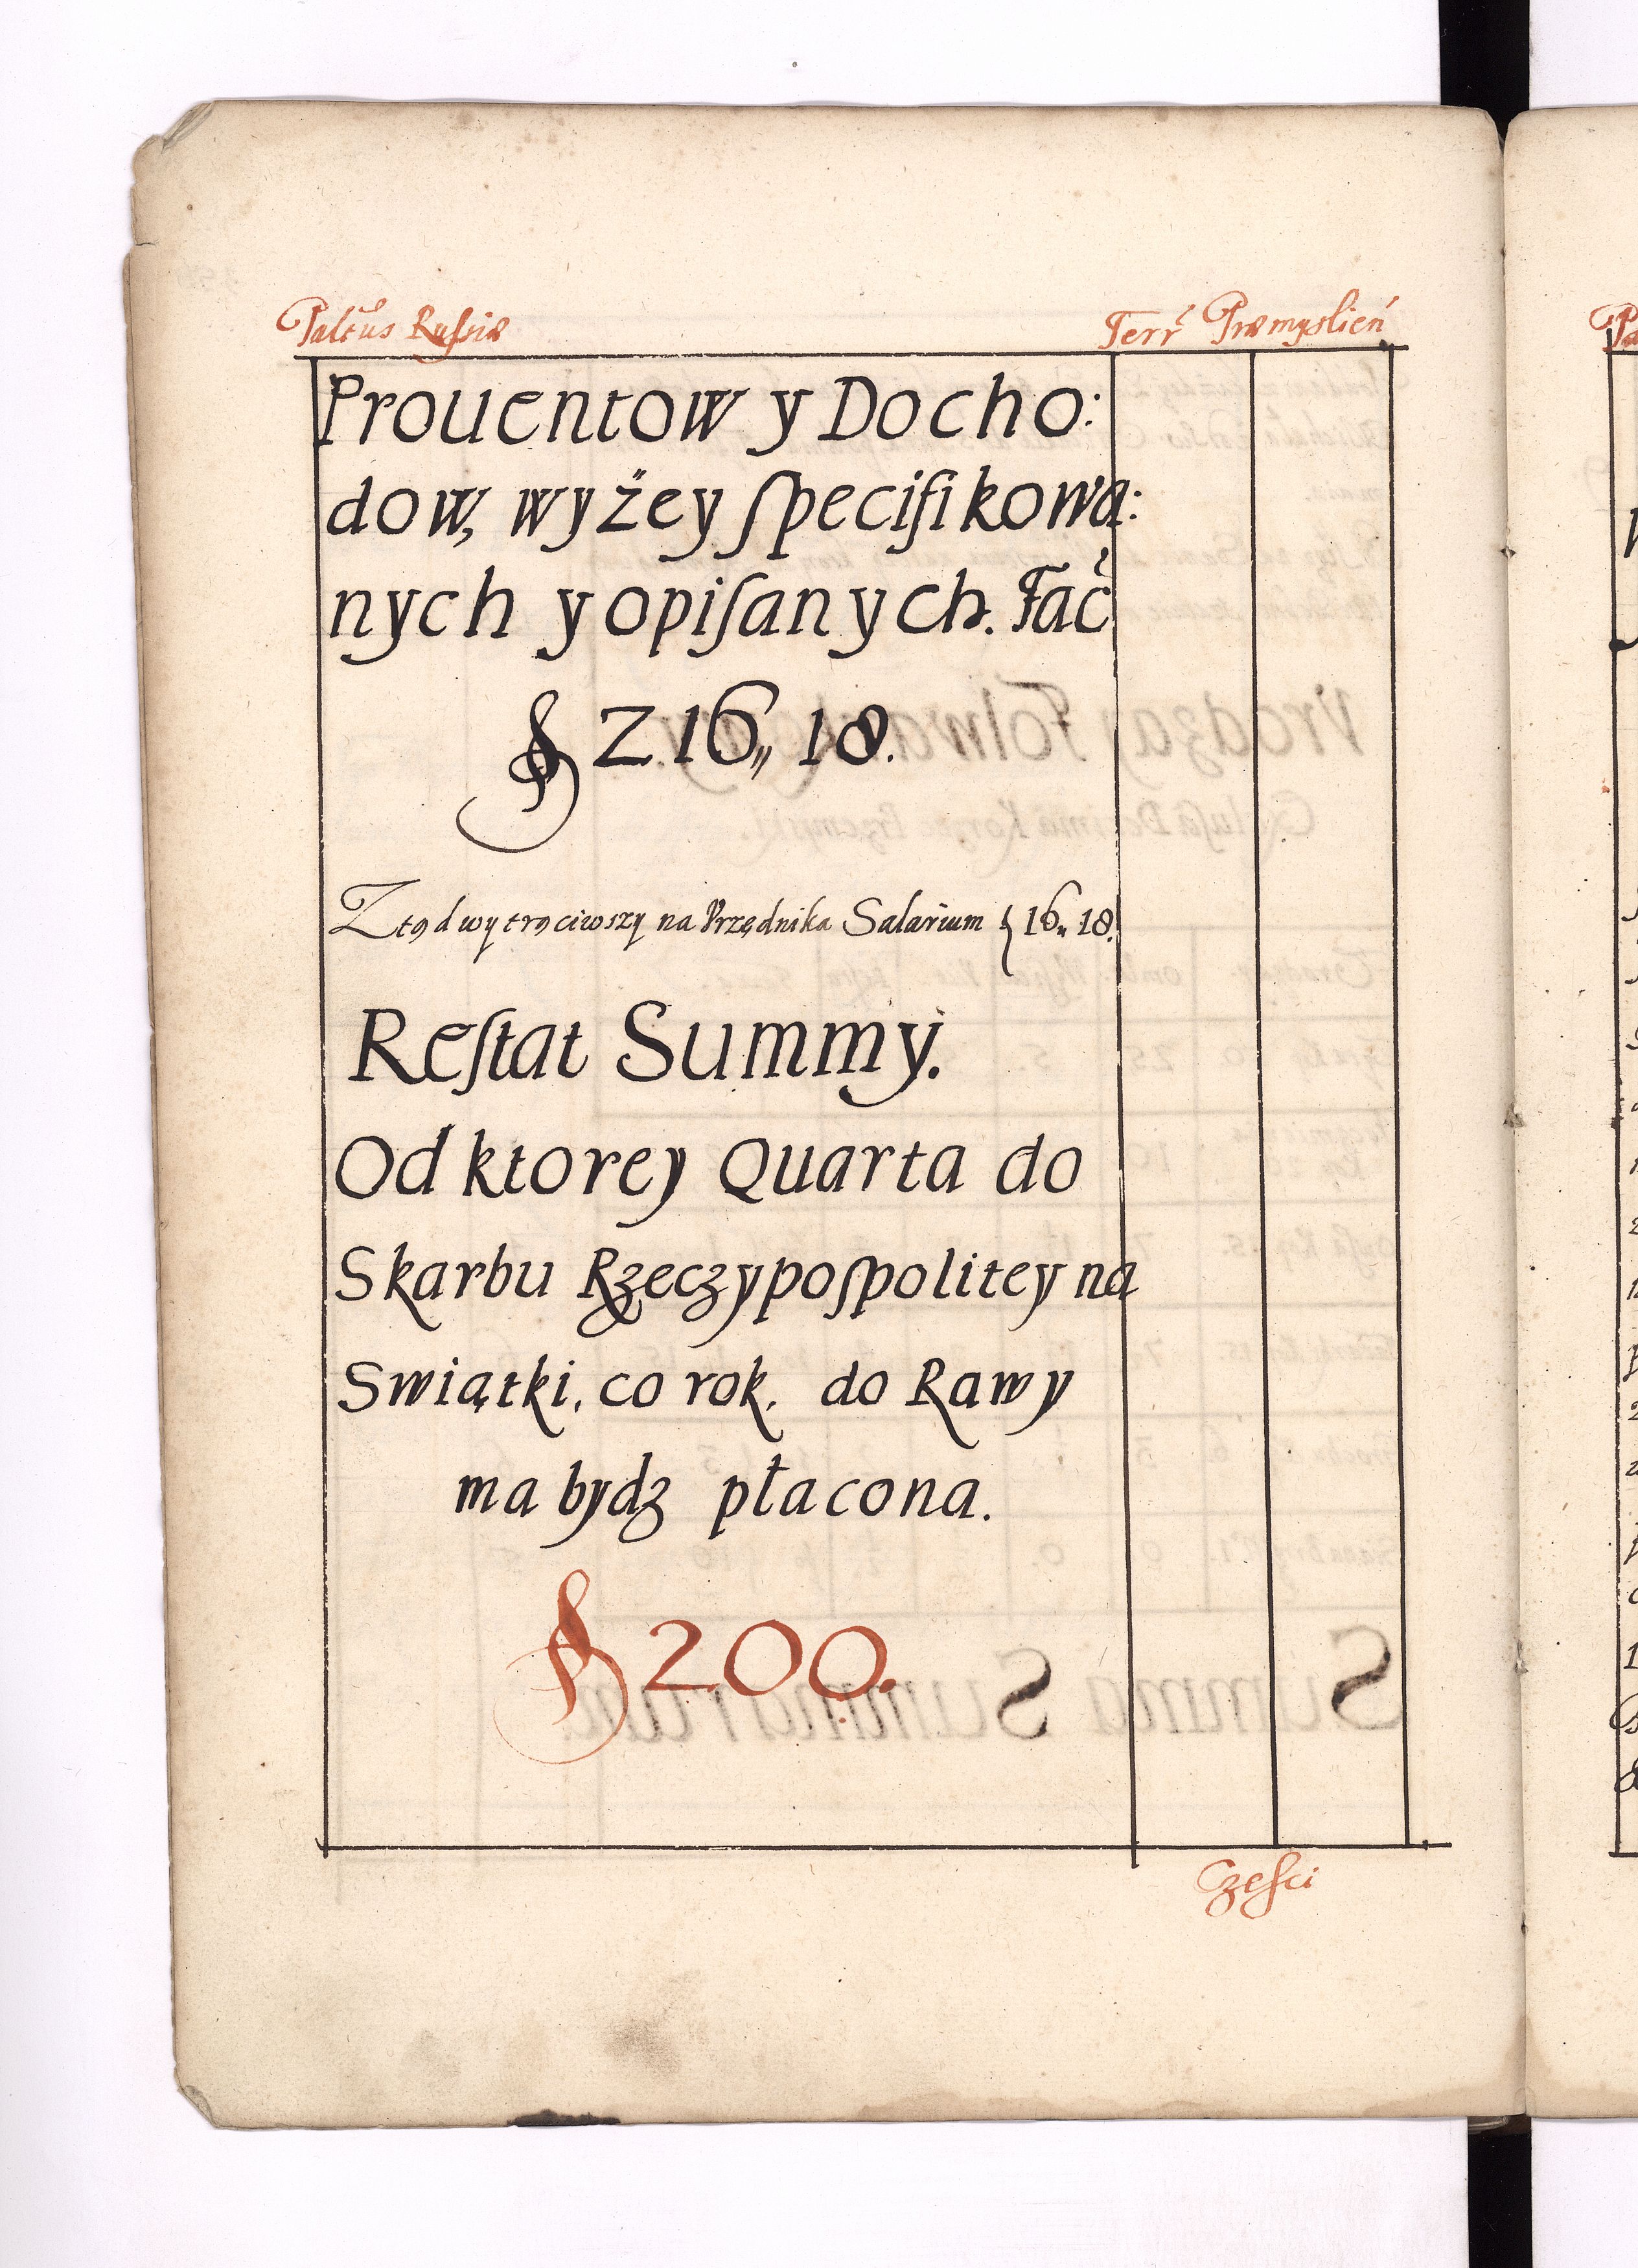 Paltus Russiæ Terr Præmyslien
Prouentow y Docho:
dow, wyżey ſpecifikowa:
nych y opiſanych. Fac
216,, 18.
Z tąd wytrąciwszy na Vrzędnika Salarium 16,, 18.
Reſtat Summy.
Od ktorey Quarta do
Skarbu Rzeczypoſpolitey na
Swiątki, co rok, do Rawy
ma bydz płacona.
200.
Częſci